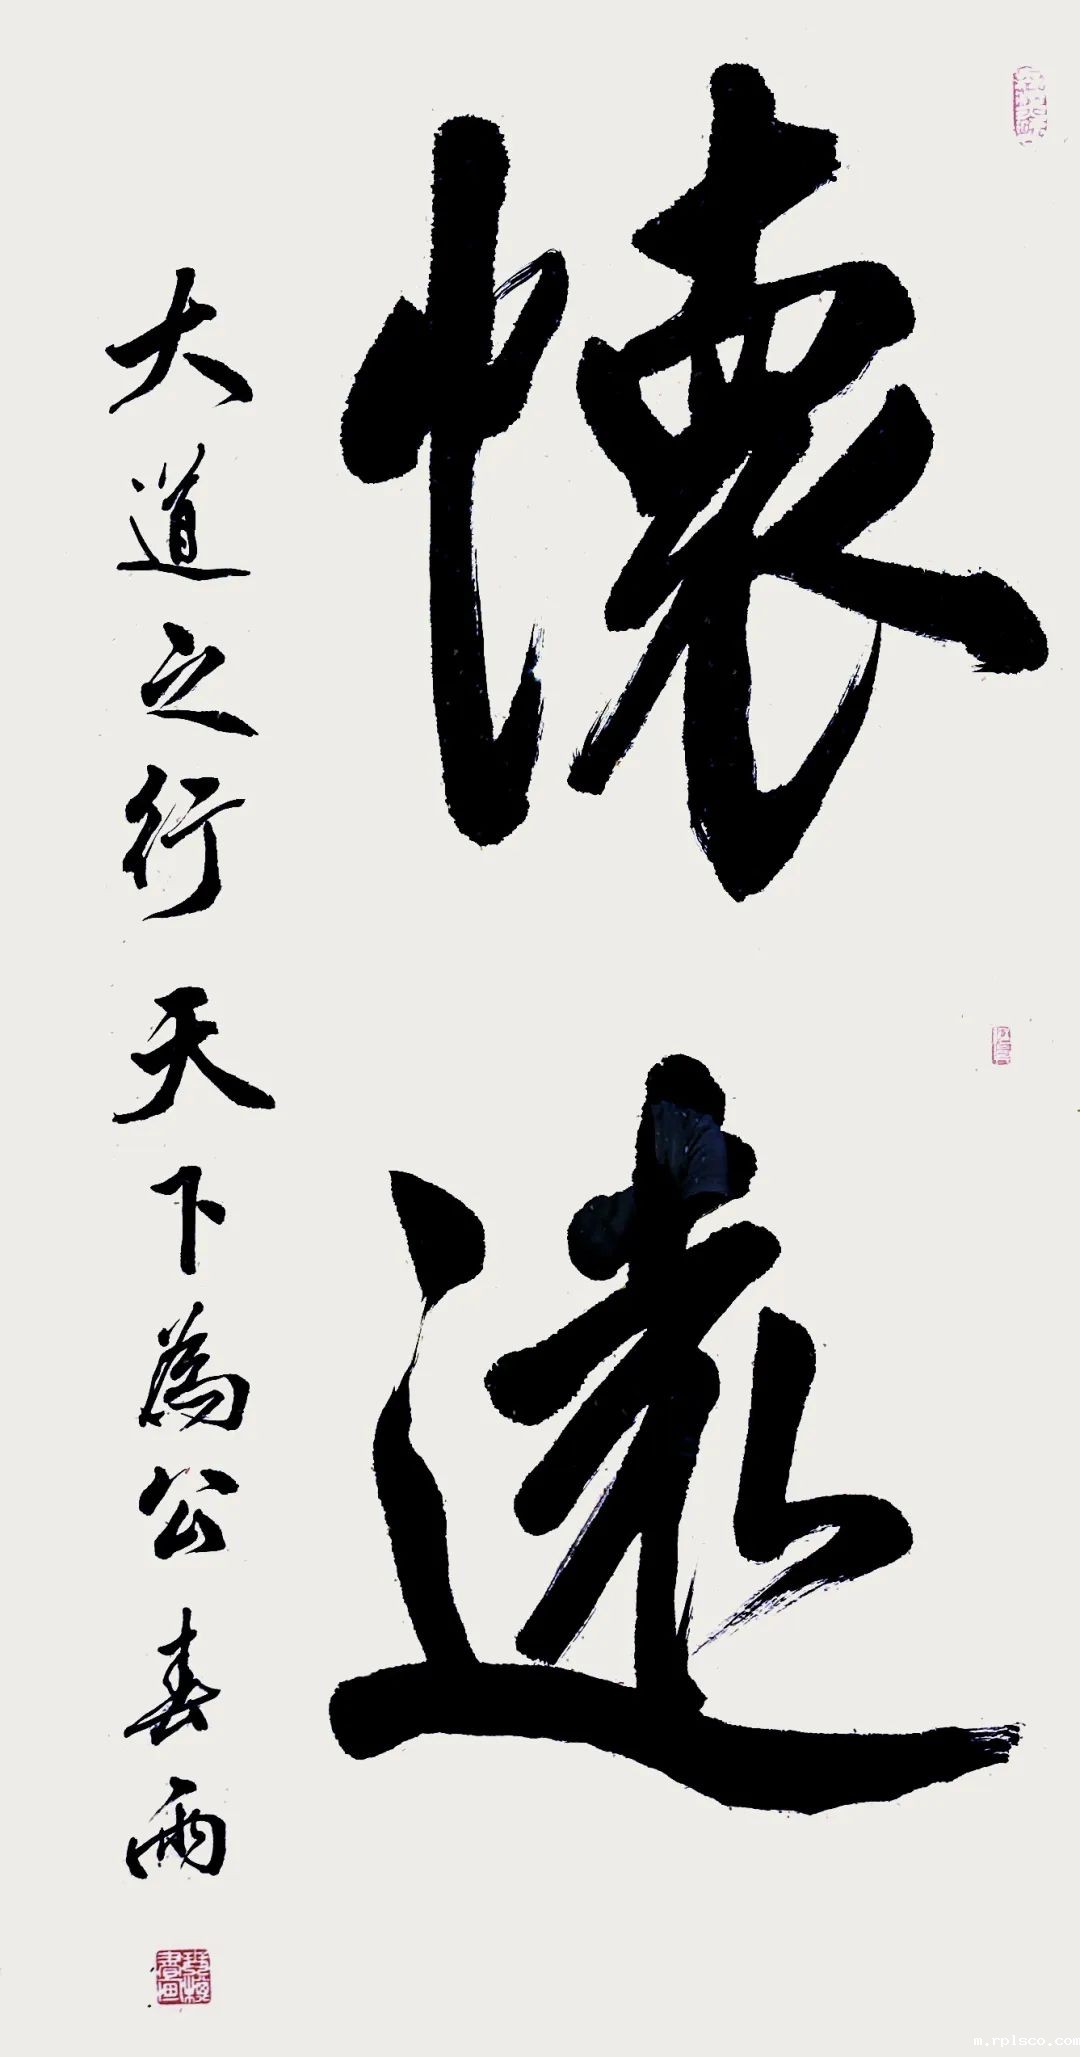 懷遠
大道之行天下為公春雨
m.rplsco.com